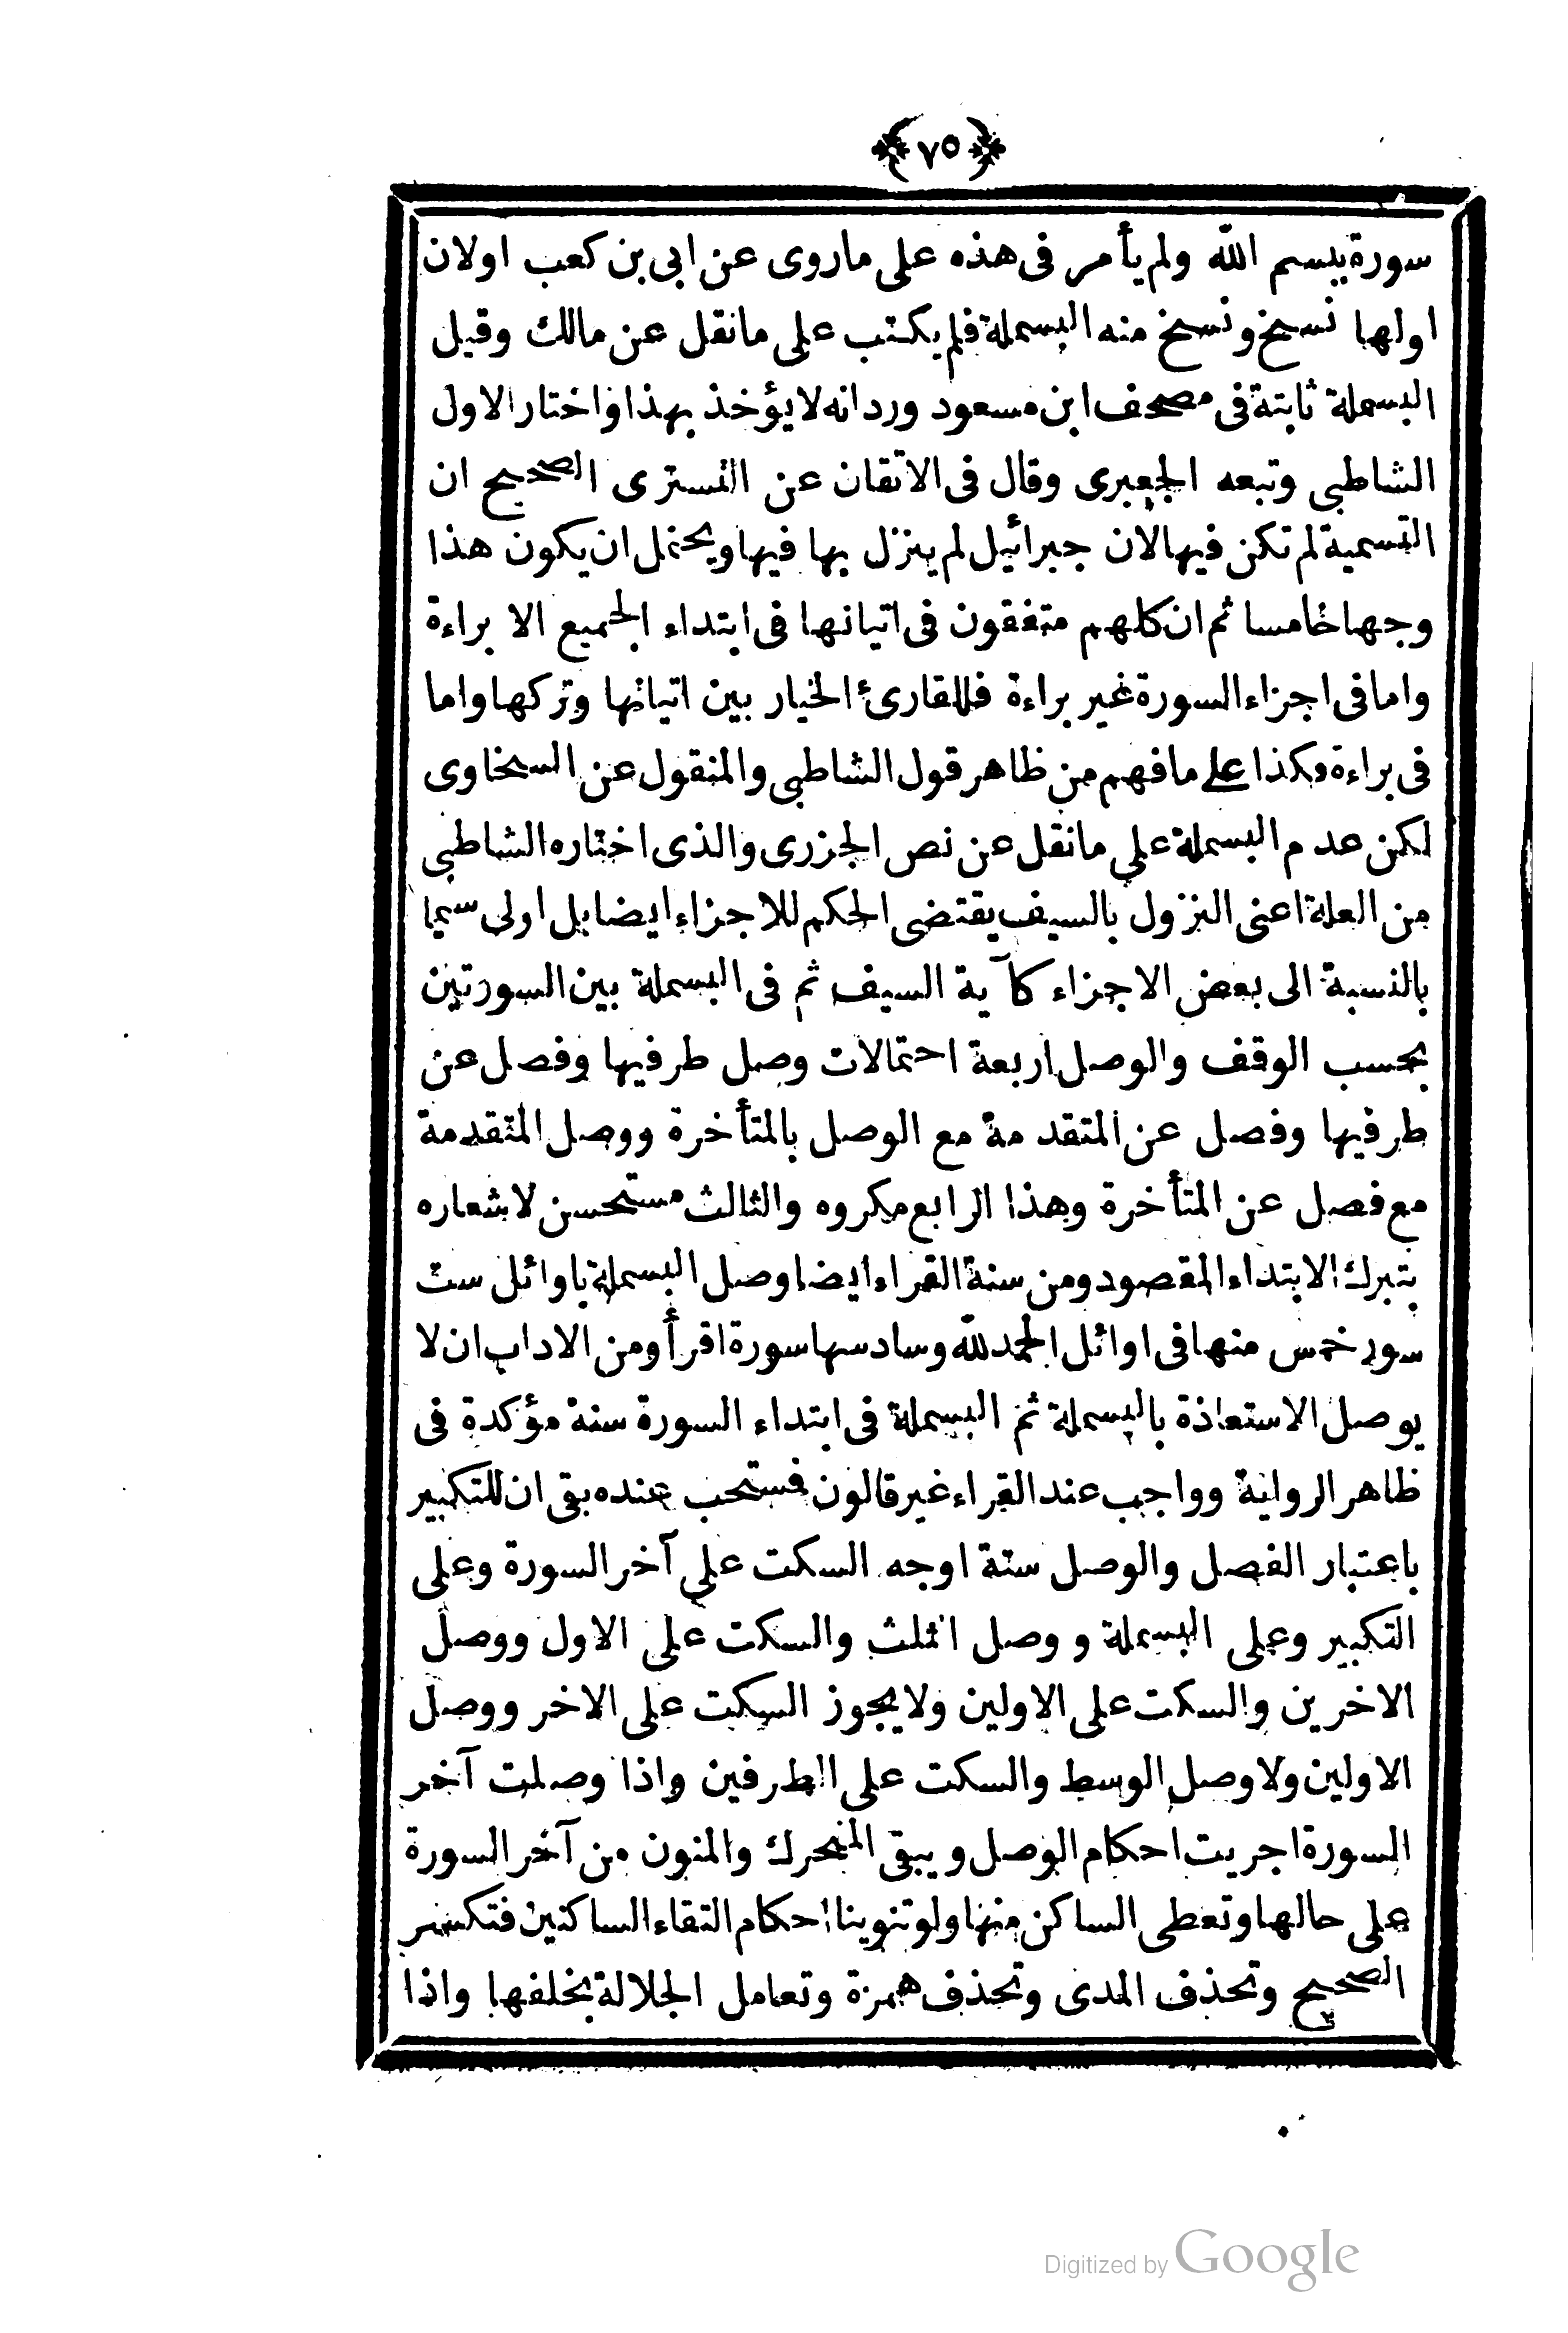 ﴿٧٥﴾
سورة ببسم الله ولم يأمر فى هذه على ماروى عن ابى بن كعب اولان
اولها نسخ ونسخ منه البسملة فلم يكتب على مانقل عن مالك وقيل
البسملة ثابتة فى مصحف ابن مسعود وردانه لايؤخذ بهذا واختار الاول
الشاطبى وتبعه الجعبرى وقال فى الاتقان عن التسترى الصحيح ان
التسمية لم تكن فيها لان جبرائيل لم ينزل بها فيها ويحتمل ان يكون هذا
وجها خامسا ثم ان كلهم متفقون فى اتيانها فى ابتداء الجميع الا براءة
واما فى اجزاء السورة غير براءة فللقارئ الخيار بين اتيانها وتركها واما
فى براءة فكذا على مافهم من ظاهر قول الشاطبى والمنقول عن السخاوى
لكن عدم البسملة على مانقل عن نص الجزرى والذى اختاره الشاطبى
من العلة اعنى النزول بالسيف يقتضى الحكم للاجزاء ايضا بل اولى سيما
بالنسبة الى بعض الاجزاء كآية السيف ثم فى البسملة بين السورتين
بحسب الوقف والوصل اربعة احتمالات وصل طرفيها وفصل عن
طرفيها وفصل عن المتقدمة مع الوصل بالمتأخرة ووصل المتقدمة
مع فصل عن المتأخرة وهذا الرابع مكروه والثالث مستحسن لاشعاره
بتبرك الابتداء المقصود ومن سنة القراء ايضا وصل البسملة باوائل ست
سور خمس منها فى اوائل الحمد لله وسادسها سورة اقرأ ومن الاداب ان لا
يوصل الاستعاذة بالبسملة ثم البسملة فى ابتداء السورة سنة مؤكدة فى
ظاهر الرواية وواجب عند القراء غير قالون فستحب عنده بقى ان للتكبير
باعتبار الفصل والوصل ستة اوجه السكت على آخر السورة وعلى
التكبير وعلى البسملة و وصل الثلث والسكت على الاول ووصل
الاخرين والسكت على الاولين ولايجوز السكت على الاخر ووصل
الاولين ولا وصل الوسط والسكت على الطرفين واذا وصلت آخر
السورة اجريت احكام الوصل ويبقى المتحرك والمنون من آخر السورة
على حالها وتعطى الساكن منها ولو تنوينا احكام التقاء الساكنين فتكسر
الصحيح وتحذف المدى وتحذف همزة وتعامل الجلالة بخلفها واذا
٣
Digitized by Google